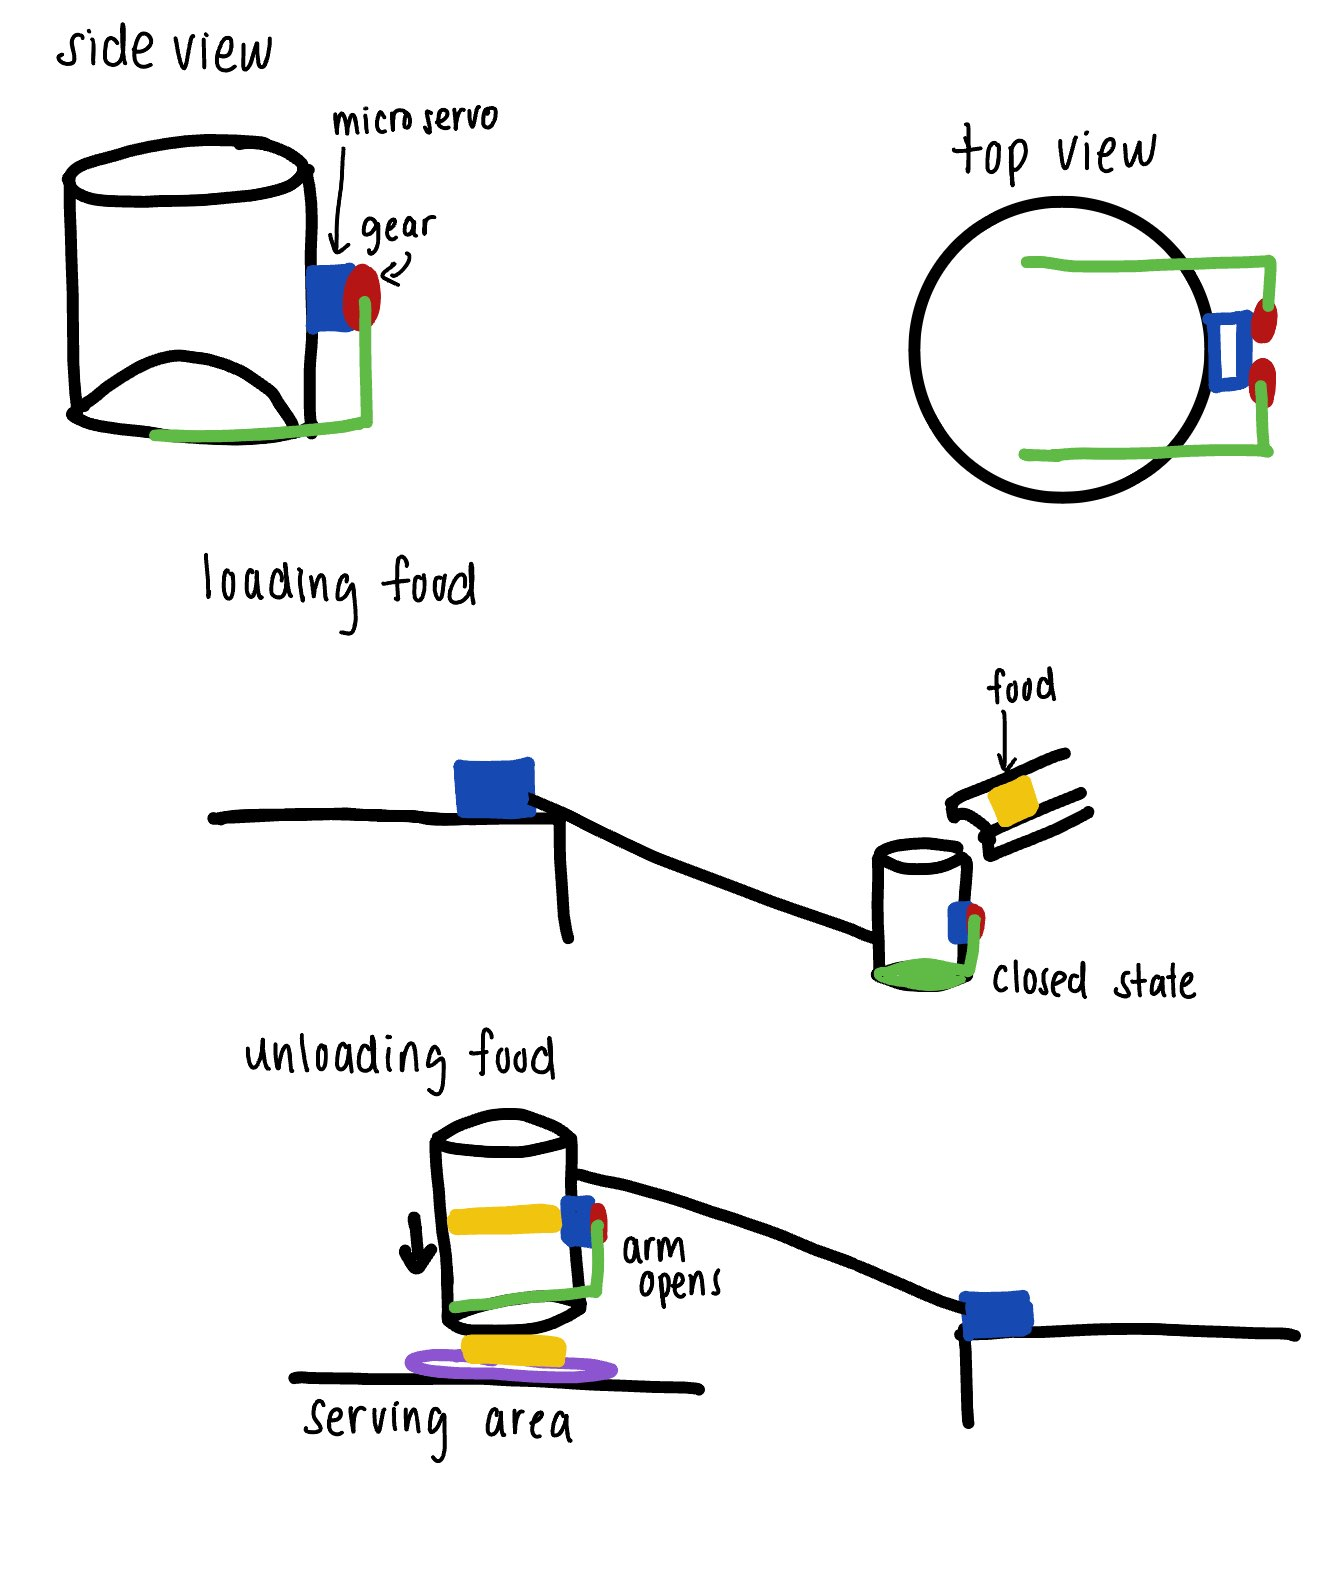 side view
micro servo
gear
top view
loading food
food
closed state
unloading food
arm
opens
serving area